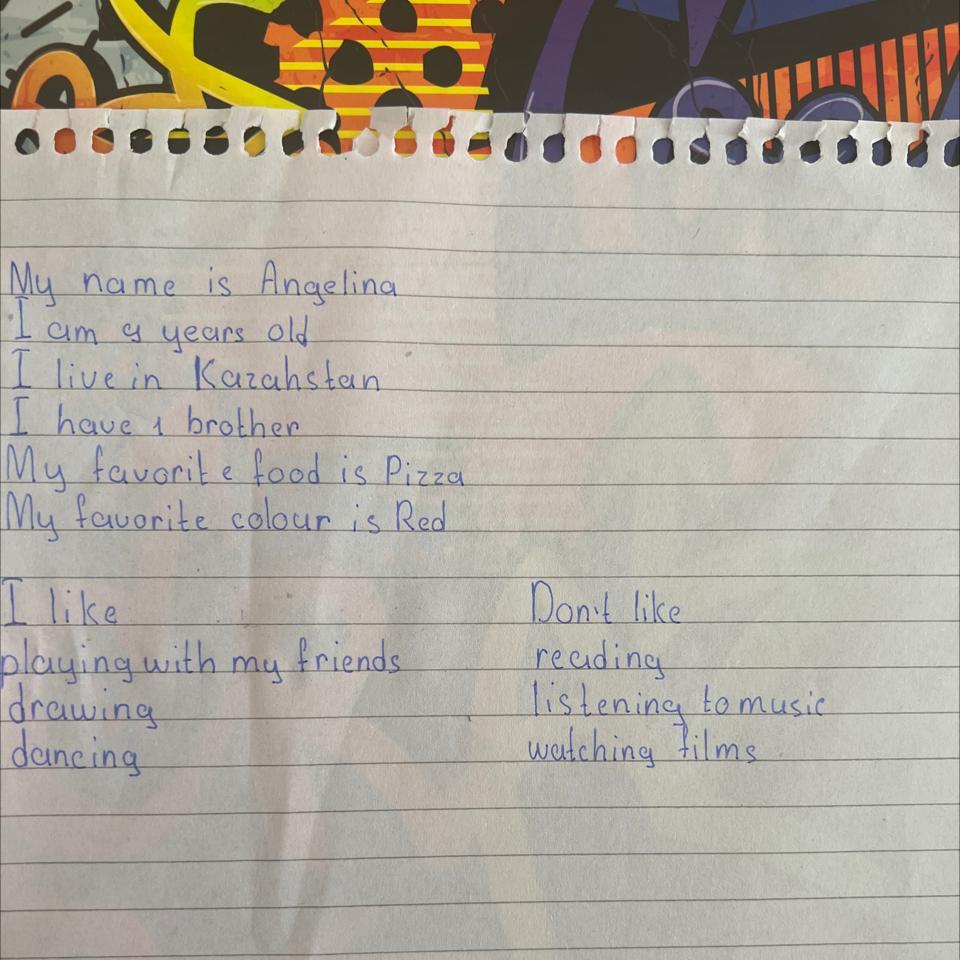 My name is Angelina
I am 9 years old
I live in Kazahstan
I have 1 brother
My favorite food is Pizza
My favorite colour is Red
I like
playing with my friends
drawing
dancing
Don't like
reading
listening to music
watching films